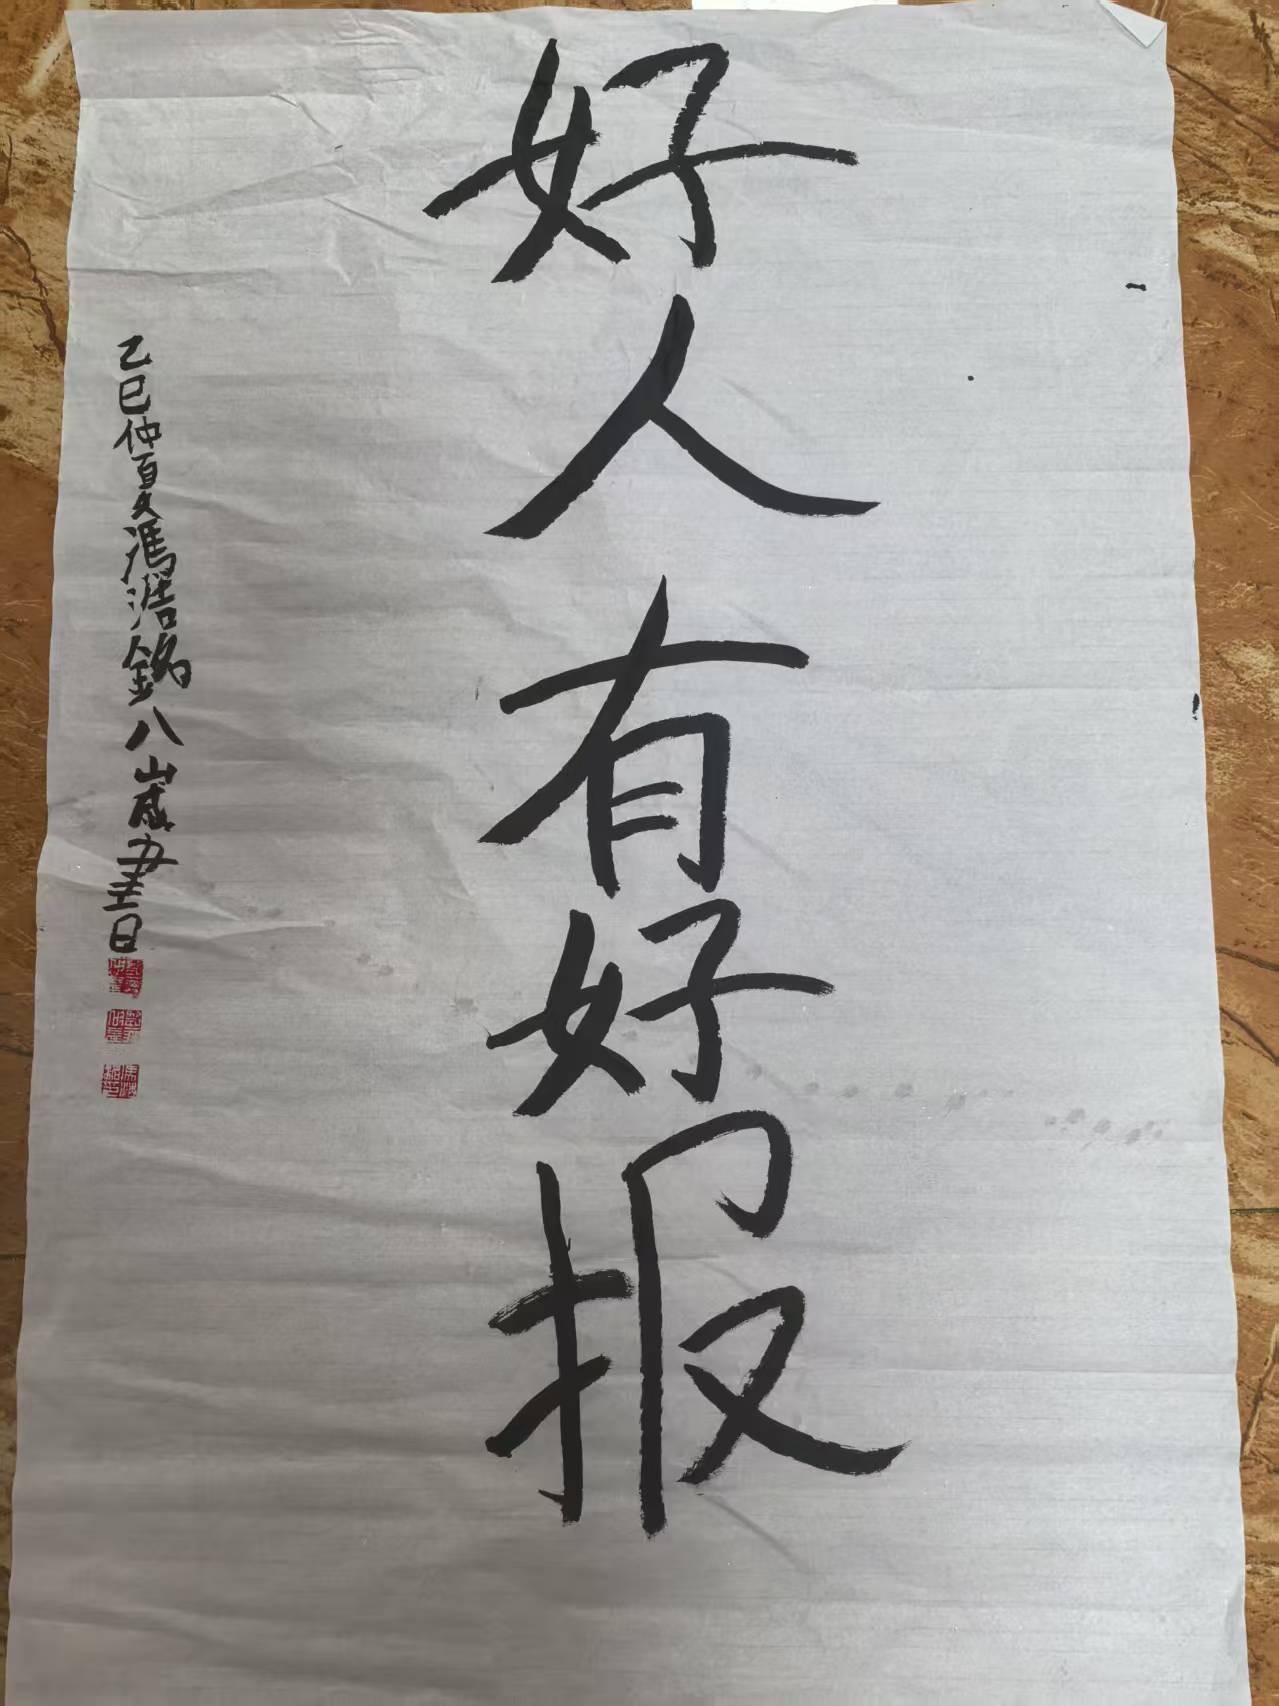 好人有好报
乙巳仲夏冯浩銘八歲書